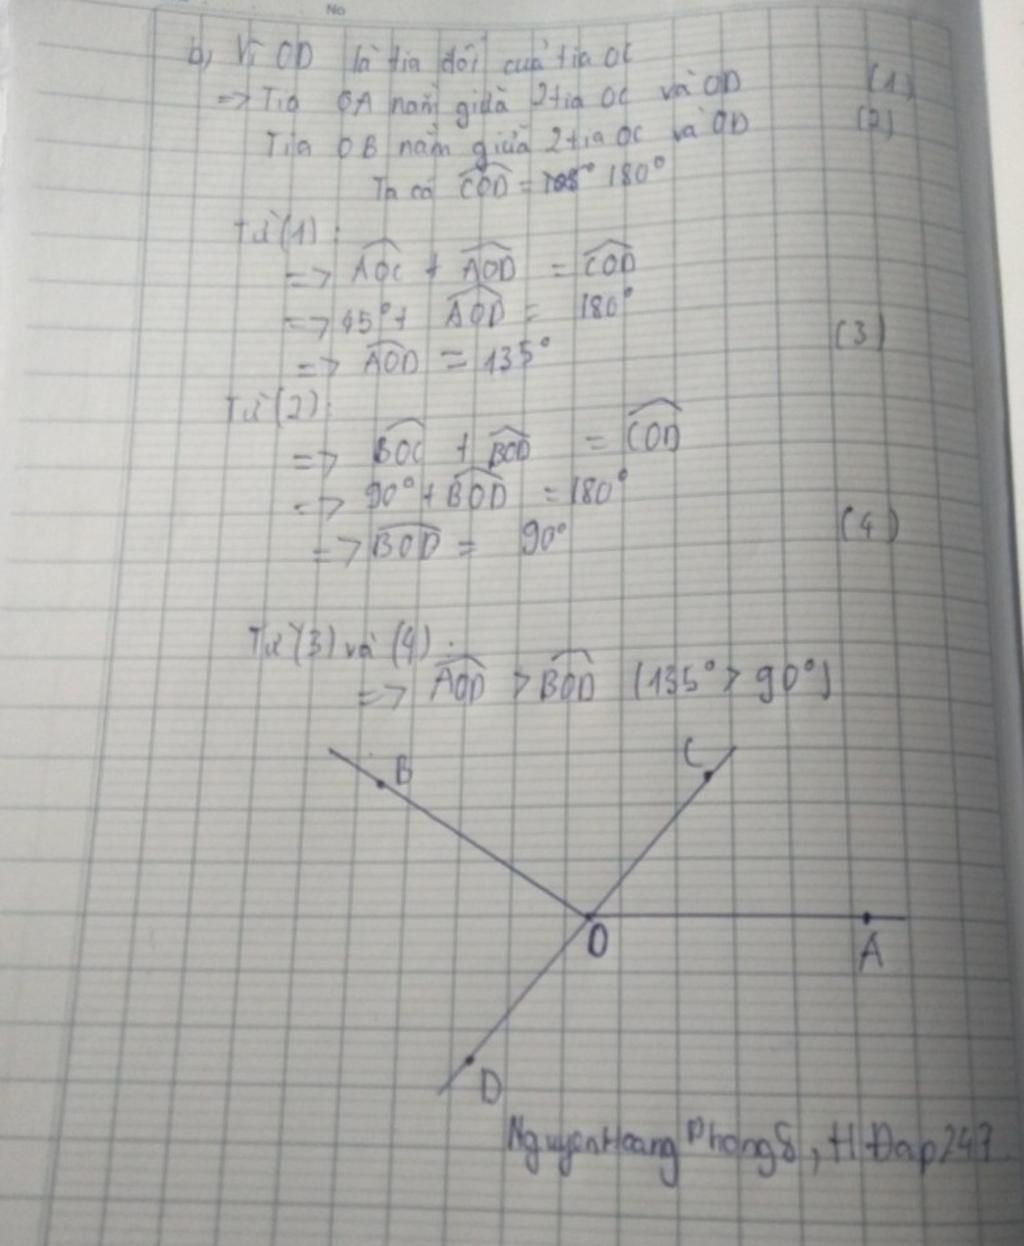 No
b) Vì OD là tia đối của tia OC
=> Tia OA nằm giữa 2 tia OC và OD (1)
Tia OB nằm giữa 2 tia OC và OD (2)
Ta có COD = 180°
Từ (1):
=> AOC + AOD = COD
=> 45° + AOD = 180°
=> AOD = 135° (3)
Từ (2):
=> BOC + BOD = COD
=> 90° + BOD = 180°
=> BOD = 90° (4)
Từ (3) và (4):
=> AOD > BOD (135° > 90°)
B
C
O
A
D
NguyenHoang Phong8, H Đap247